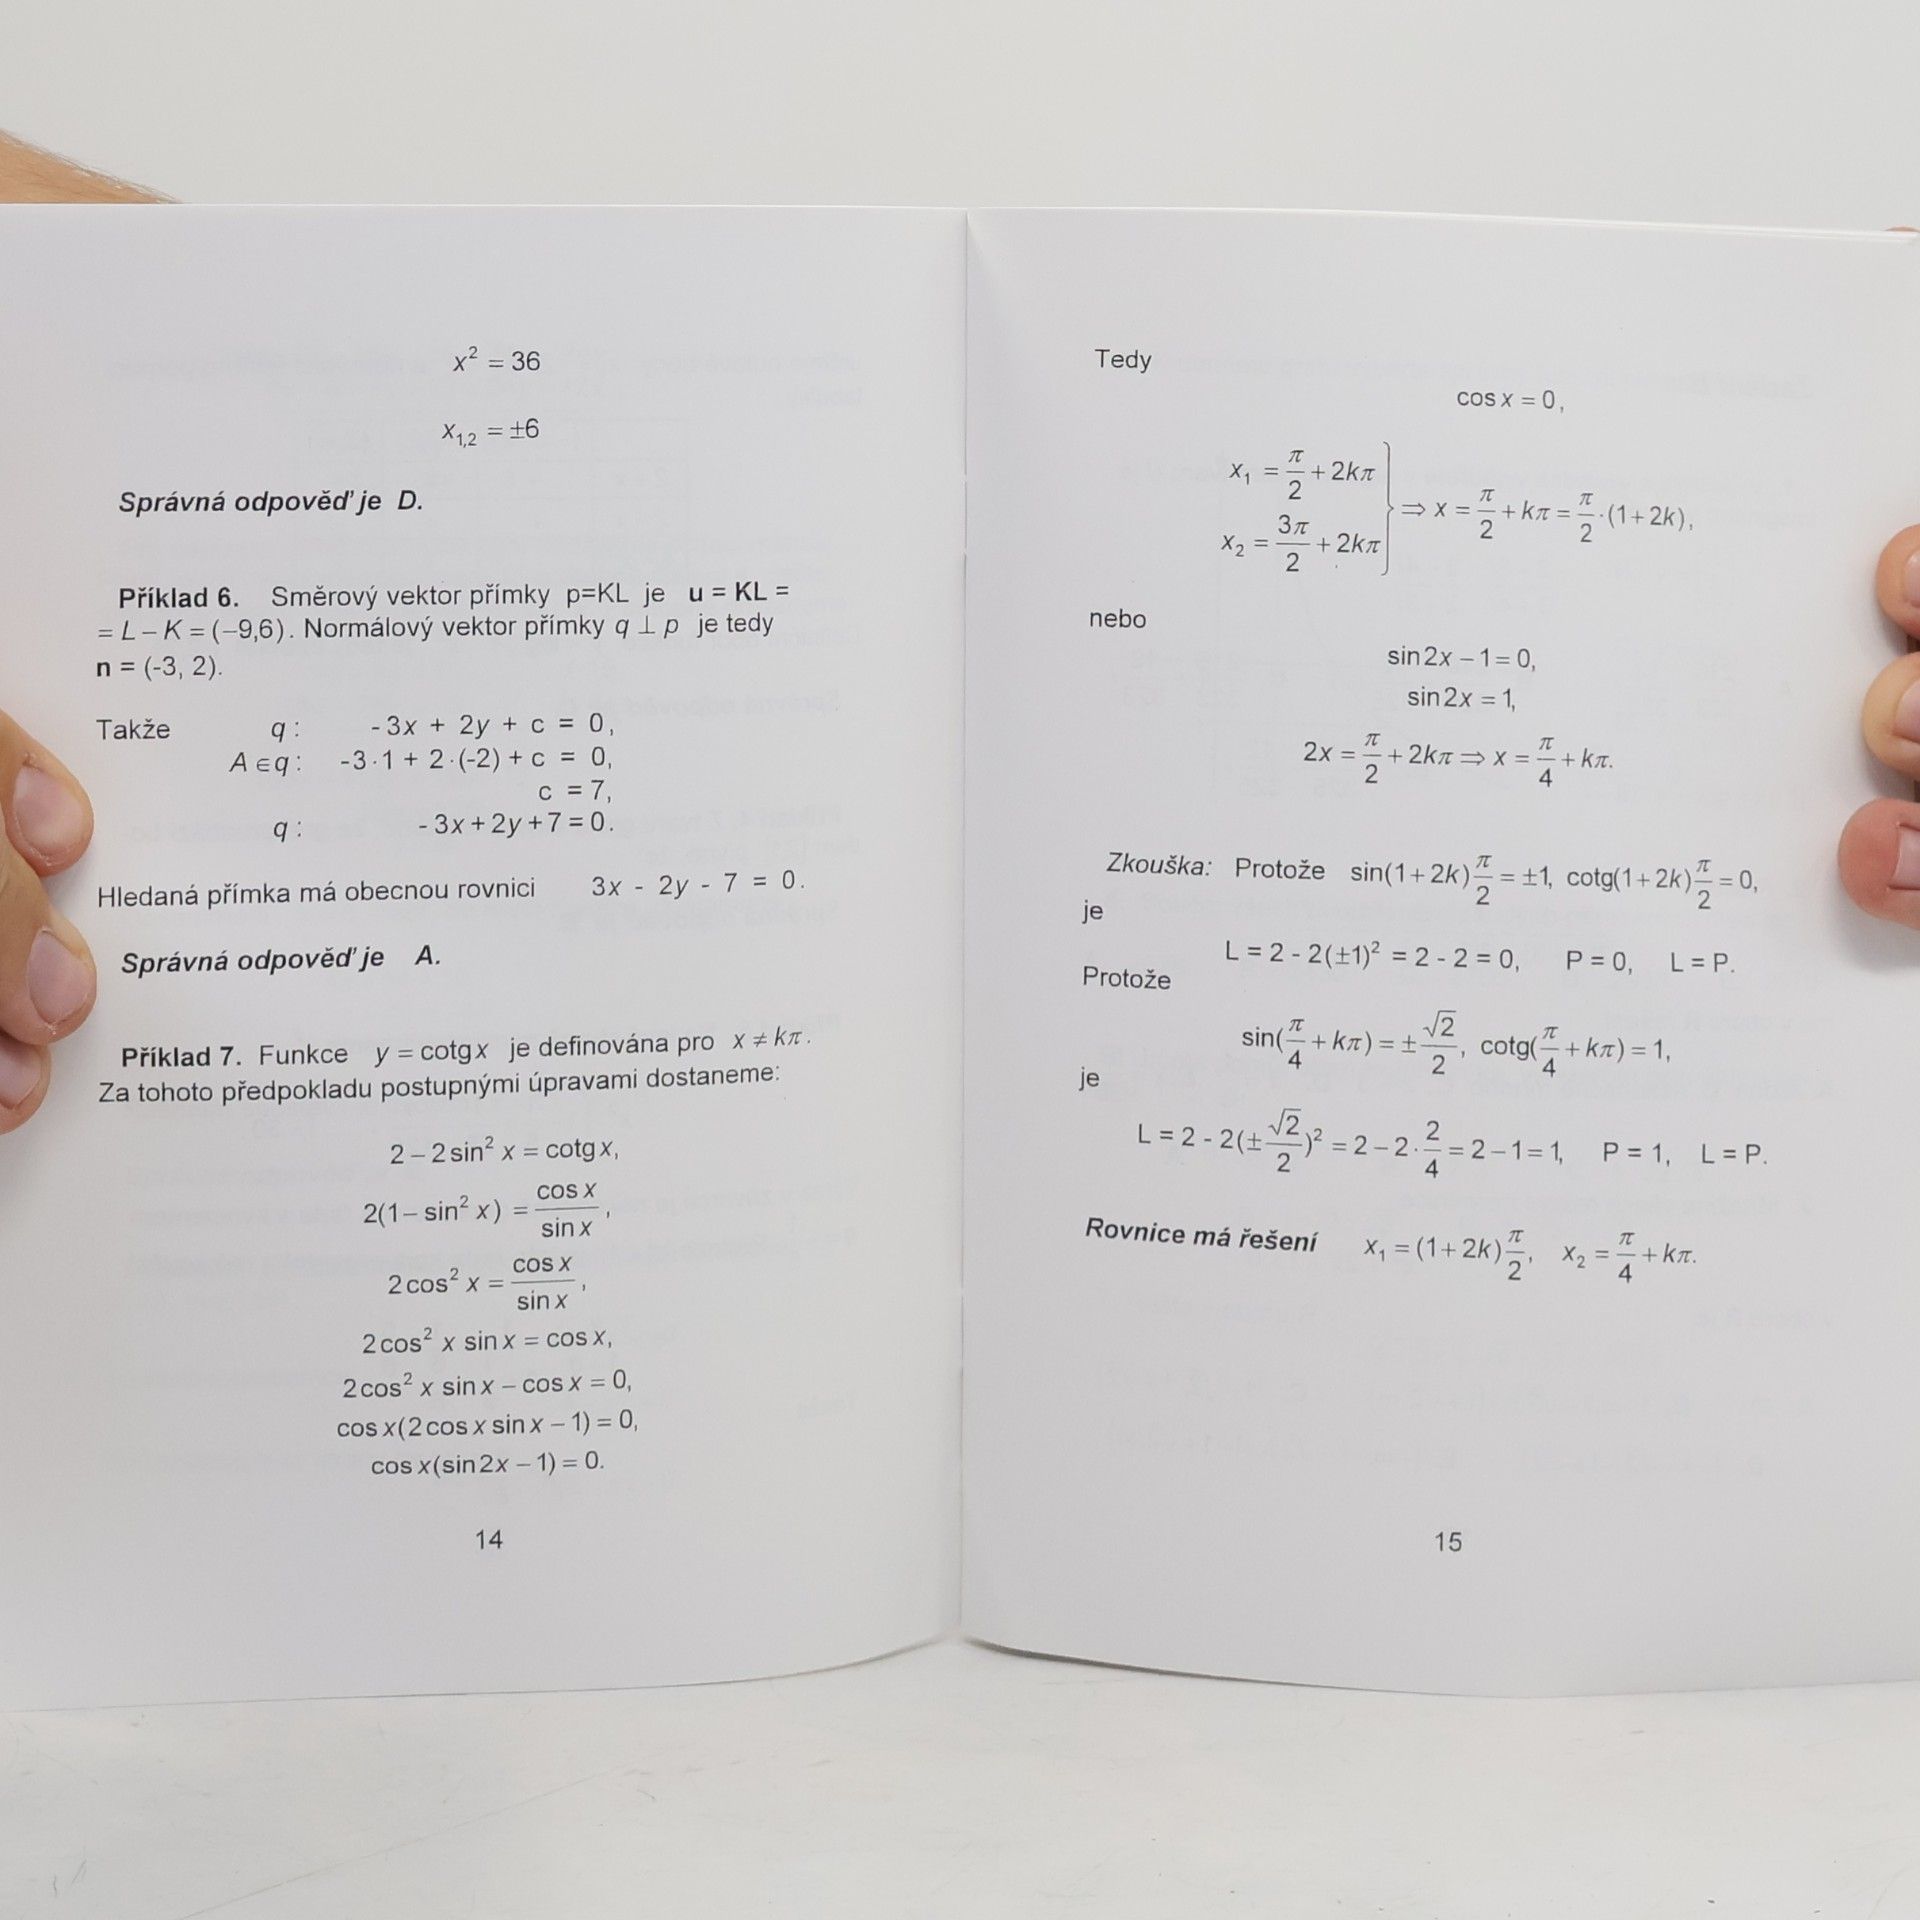 x² = 36
x₁,₂ = ±6
Správná odpověď je D.
Příklad 6. Směrový vektor přímky p=KL je u = KL =
= L – K = (–9,6). Normálový vektor přímky q ⊥ p je tedy
n = (-3, 2).
Takže q: -3x + 2y + c = 0,
A∈q: -3·1 + 2·(-2) + c = 0,
c = 7,
q: -3x+2y+7=0.
Hledaná přímka má obecnou rovnici 3x - 2y - 7 = 0.
Správná odpověď je A.
Příklad 7. Funkce y = cotg x je definována pro x ≠ kπ.
Za tohoto předpokladu postupnými úpravami dostaneme:
2 – 2 sin² x = cotg x,
2(1– sin² x) = cos x / sin x,
2 cos² x = cos x / sin x,
2 cos² x sin x = cos x,
2 cos² x sin x – cos x = 0,
cos x(2 cos x sin x – 1) = 0,
cos x(sin 2x – 1) = 0.
14
Tedy
cos x = 0,
x₁ = π/2 + 2kπ
x₂ = 3π/2 + 2kπ } ⇒ x = π/2 + kπ = π/2 ·(1+ 2k),
nebo
sin 2x – 1 = 0,
sin 2x = 1,
2x = π/2 + 2kπ ⇒ x = π/4 + kπ.
Zkouška: Protože sin(1+ 2k) π/2 = ±1, cotg(1+ 2k) π/2 = 0,
je
L = 2 - 2(±1)² = 2 - 2 = 0, P = 0, L = P.
Protože
sin(π/4 + kπ) = ± √2/2, cotg(π/4 + kπ) = 1,
je
L = 2 - 2(± √2/2)² = 2 – 2 · 2/4 = 2 – 1 = 1, P = 1, L = P.
Rovnice má řešení x₁ = (1+ 2k) π/2, x₂ = π/4 + kπ.
15